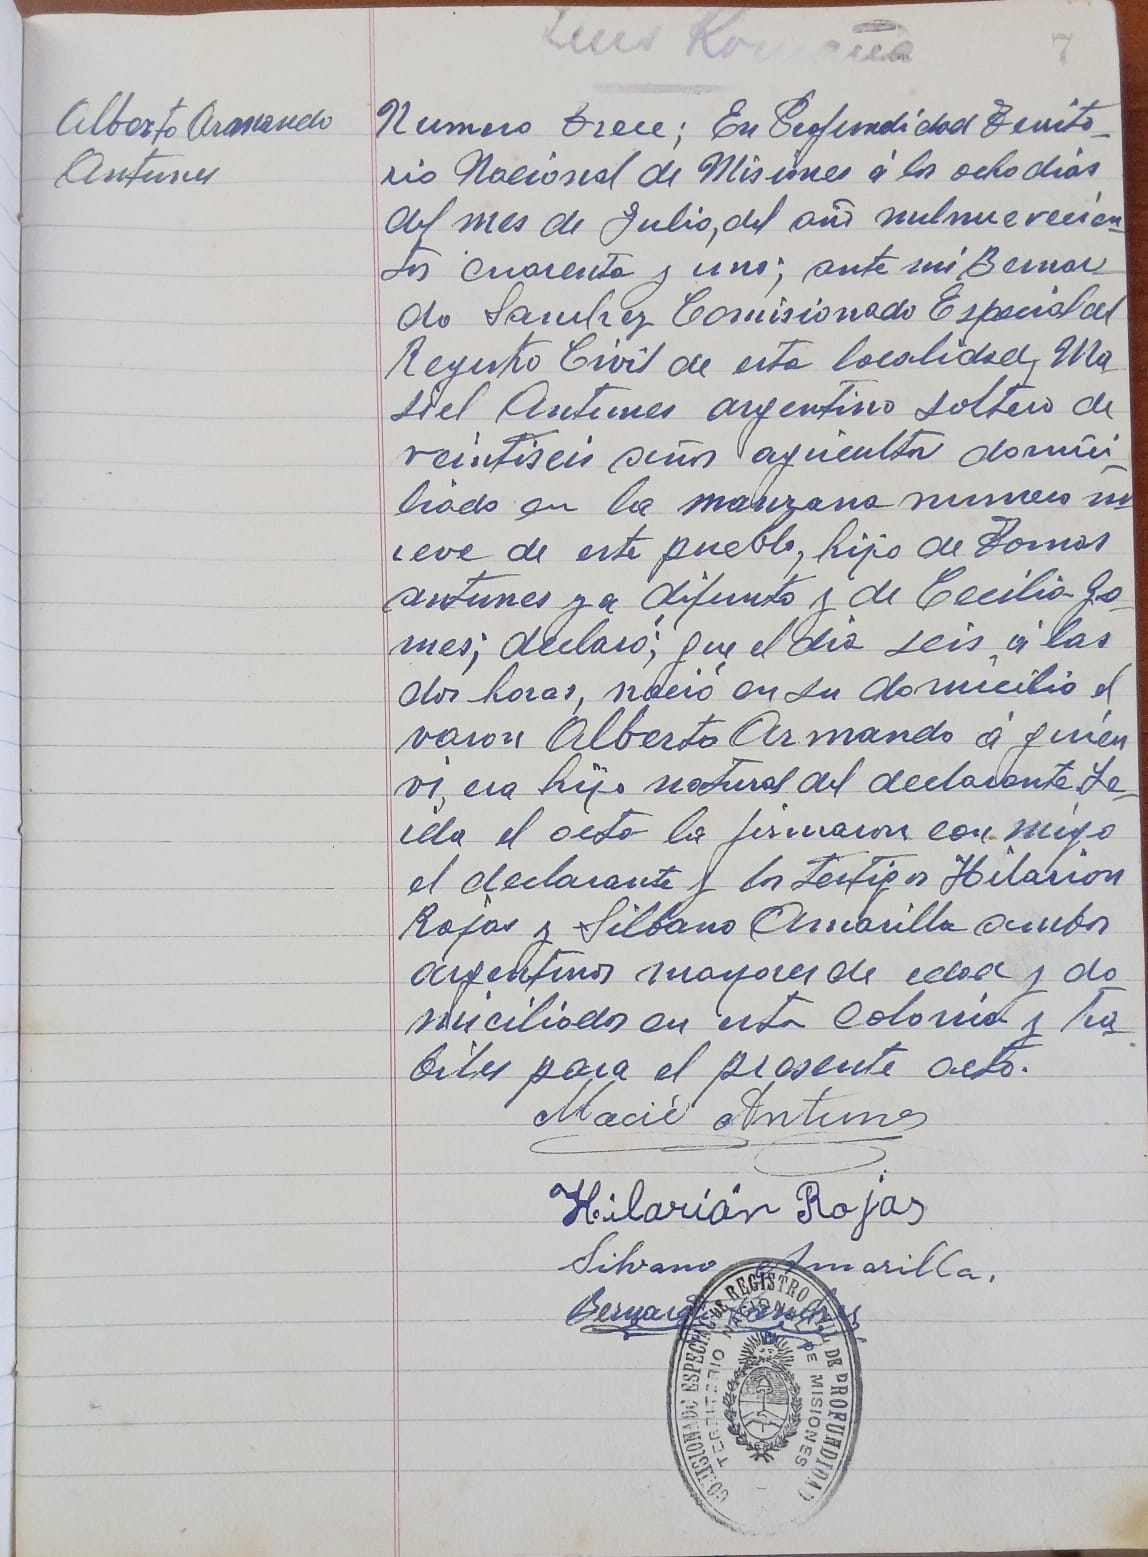 Luis Romaña
7
Alberto Armando
Antunes
Numero Trece; En Profundidad Territo-
rio Nacional de Misiones á los ocho dias
del mes de Julio, del año mil nuevecien-
tos cuarenta y uno; ante mi Bernar
do Sanchez Comisionado Especial del
Registro Civil de esta localidad, Ma
siel Antunes argentino soltero de
veintiseis años agricultor domici-
liado en la manzana numero nu
eve de este pueblo, hijo de Tomas
antunes ya difunto y de Cecilia Go-
mes; declaró; que el dia seis á las
dos horas, nació en su domicilio el
varon Alberto Armando á quien
vi, era hijo natural del declarante. Le-
ida el acta la firmaron con migo
el declarante y los testigos Hilarion
Rojas y Silbano Amarilla ambos
argentinos mayores de edad y do
miciliados en esta colonia y ha-
biles para el presente acto.
Maciel Antunes
Hilarián Rojas
Silvano Amarilla.
Bernardo Sanchez
COMISIONADO ESPECIAL DE REGISTRO CIVIL DE PROFUNDIDAD
TERRITORIO NACIONAL DE MISIONES